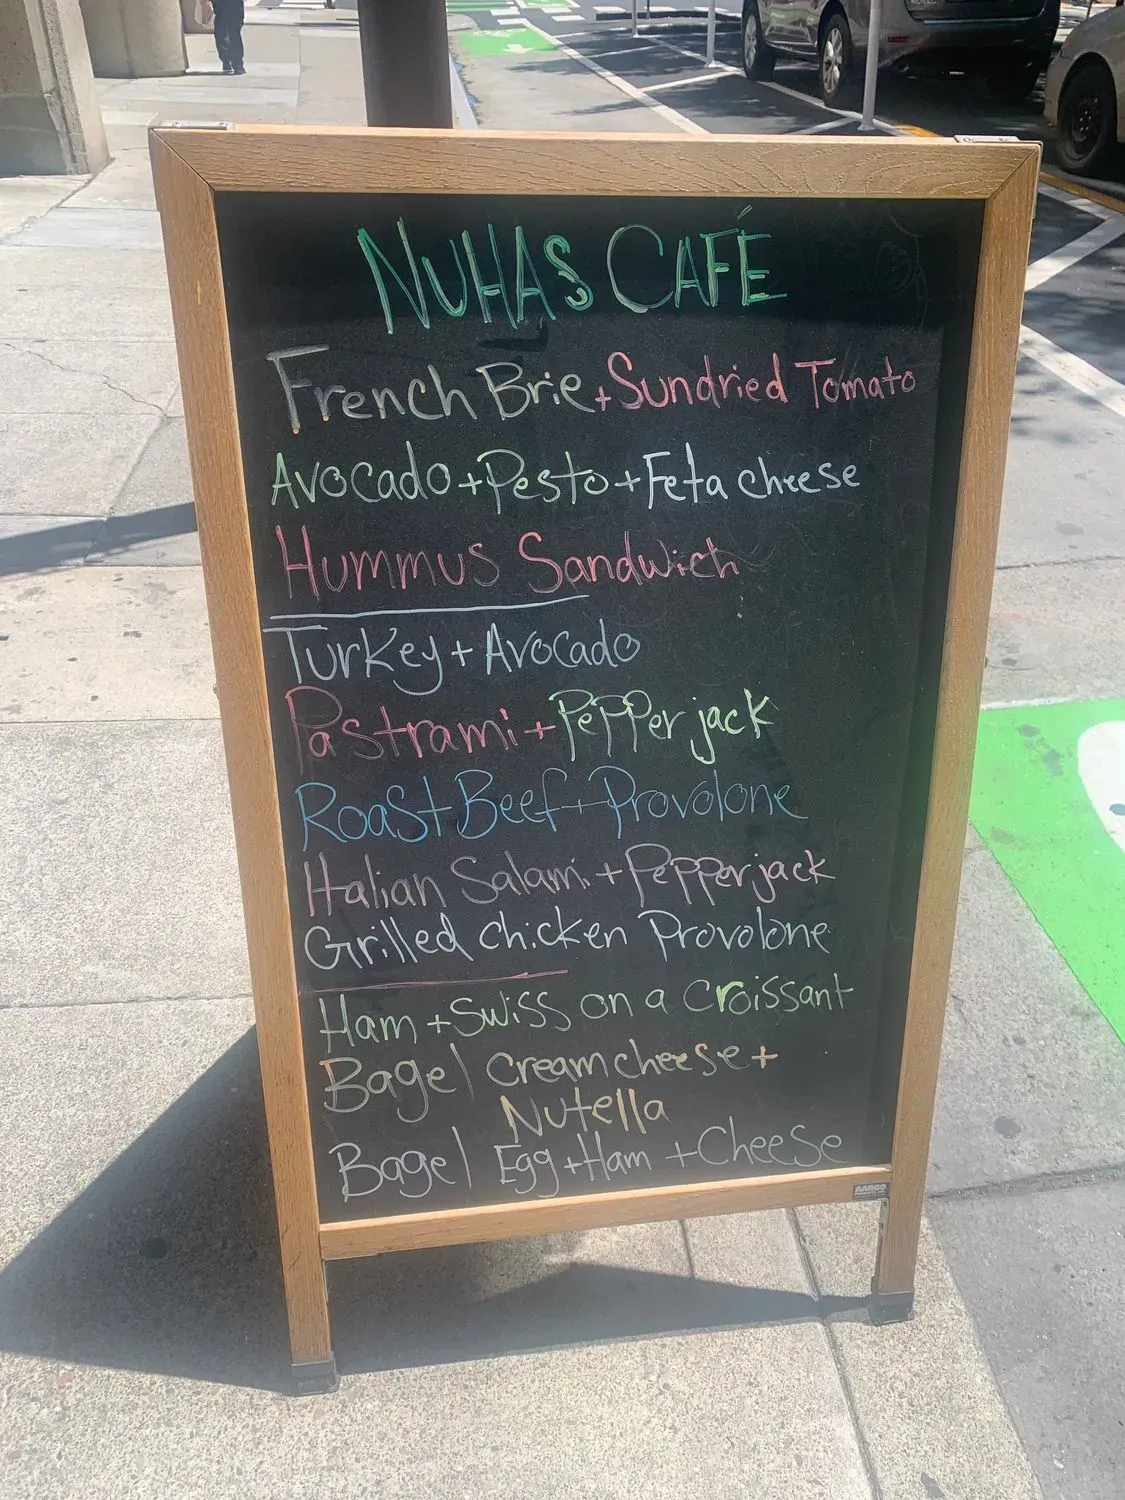 NUHAS CAFÉ
French Brie + Sundried Tomato
Avocado + Pesto + Feta cheese
Hummus Sandwich
Turkey + Avocado
Pastrami + Pepper jack
Roast Beef + Provolone
Italian Salami + Pepper jack
Grilled chicken Provolone
Ham + Swiss on a Croissant
Bagel cream cheese +
Nutella
Bagel Egg + Ham + Cheese
AARCO